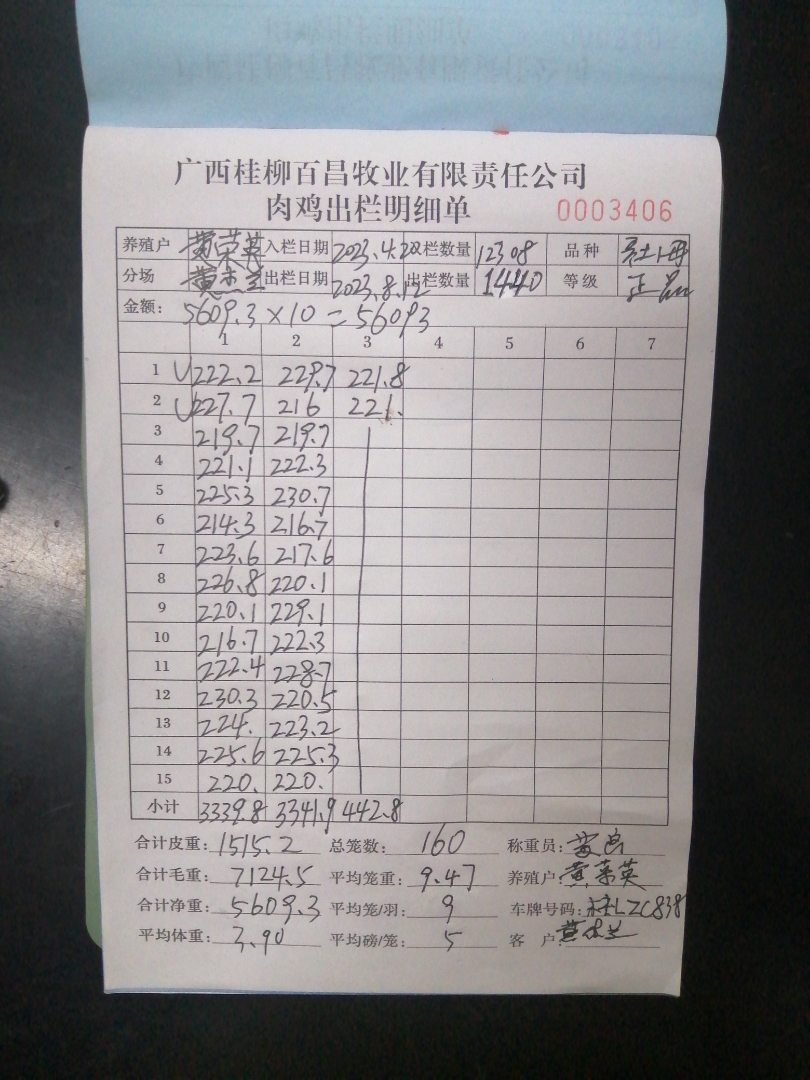 广西桂柳百昌牧业有限责任公司
肉鸡出栏明细单 0003406
养殖户 黄荣英 入栏日期 2023.4.20 入栏数量 12308 品种
分场 黄杰兰 出栏日期 2023.8.12 出栏数量 1440 等级 正品
金额: 5609.3×10=56093
1 2 3 4 5 6 7
1 √222.2 229.7 221.8
2 √227.7 216 221.
3 219.7 219.7
4 221.1 222.3
5 225.3 230.7
6 214.3 216.7
7 223.6 217.6
8 226.8 220.1
9 220.1 229.1
10 216.7 222.3
11 222.4 228.7
12 230.3 220.5
13 224. 223.2
14 225.6 225.3
15 220. 220.
小计 3339.8 3341.9 442.8
合计皮重: 1515.2 总笼数: 160 称重员:
合计毛重: 7124.5 平均笼重: 9.47 养殖户: 黄荣英
合计净重: 5609.3 平均笼/羽: 9 车牌号码: 桂LZC838
平均体重: 3.90 平均磅/笼: 5 客户: 黄杰兰